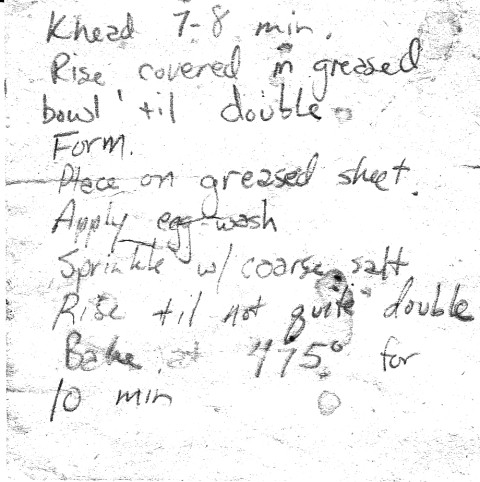 Knead 7-8 min.
Rise covered in greased
bowl 'til double
Form.
Place on greased sheet.
Apply egg wash
Sprinkle w/ coarse salt
Rise til not quite double
Bake at 475° for
10 min